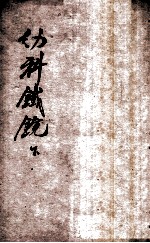 幼科鐵鏡
下